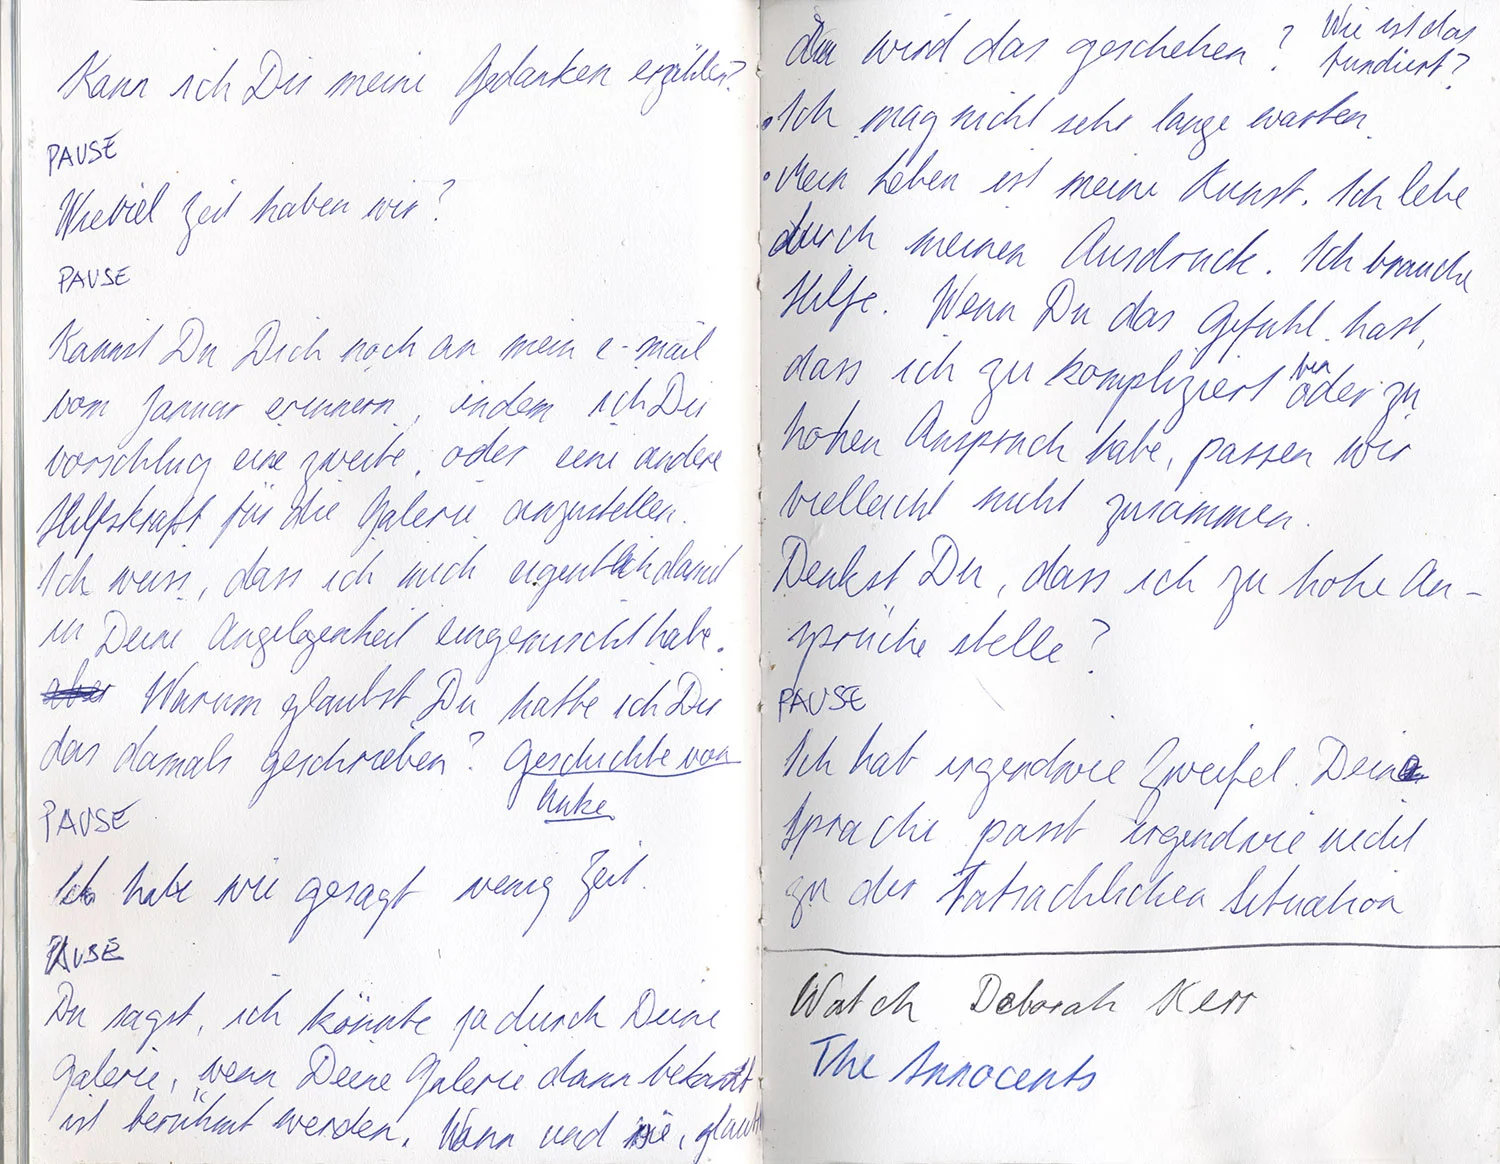 Kann ich Dir meine Gedanken erzählen?
PAUSE
Wieviel Zeit haben wir?
PAUSE
Kannst Du Dich noch an mein e-mail
vom Januar erinnern, indem ich Dir
vorschlug eine zweite, oder eine andere
Hilfskraft für die Galerie anzustellen.
Ich weiss, dass ich mich eigentlich damit
in Deine Angelegenheit eingemischt habe.
aber Warum glaubst Du hatte ich Dir
das damals geschrieben? Geschichte von
Anke
PAUSE
Ich habe wie gesagt wenig Zeit.
PAUSE
Du sagst, ich könnte ja durch Deine
Galerie, wenn Deine Galerie dann bekannt
ist berühmt werden. Wann und wie, glaubst
du wird das geschehen? Wie ist das
fundiert?
• Ich mag nicht sehr lange warten.
• Mein Leben ist meine Kunst. Ich lebe
durch meinen Ausdruck. Ich brauche
Hilfe. Wenn Du das Gefühl hast,
dass ich zu kompliziert bin oder zu
hohen Anspruch habe, passen wir
vielleicht nicht zusammen.
Denkst Du, dass ich zu hohe An-
sprüche stelle?
PAUSE
Ich hab irgendwie Zweifel. Deine
Sprache passt irgendwie nicht
zu der Tatsächlichen Situation
Watch Deborah Kerr
The Innocents